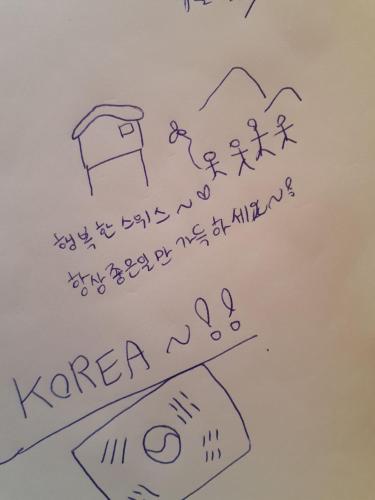 행복한 스위스 ~ ♡
항상 좋은일만 가득하세요~!
KOREA ~!!